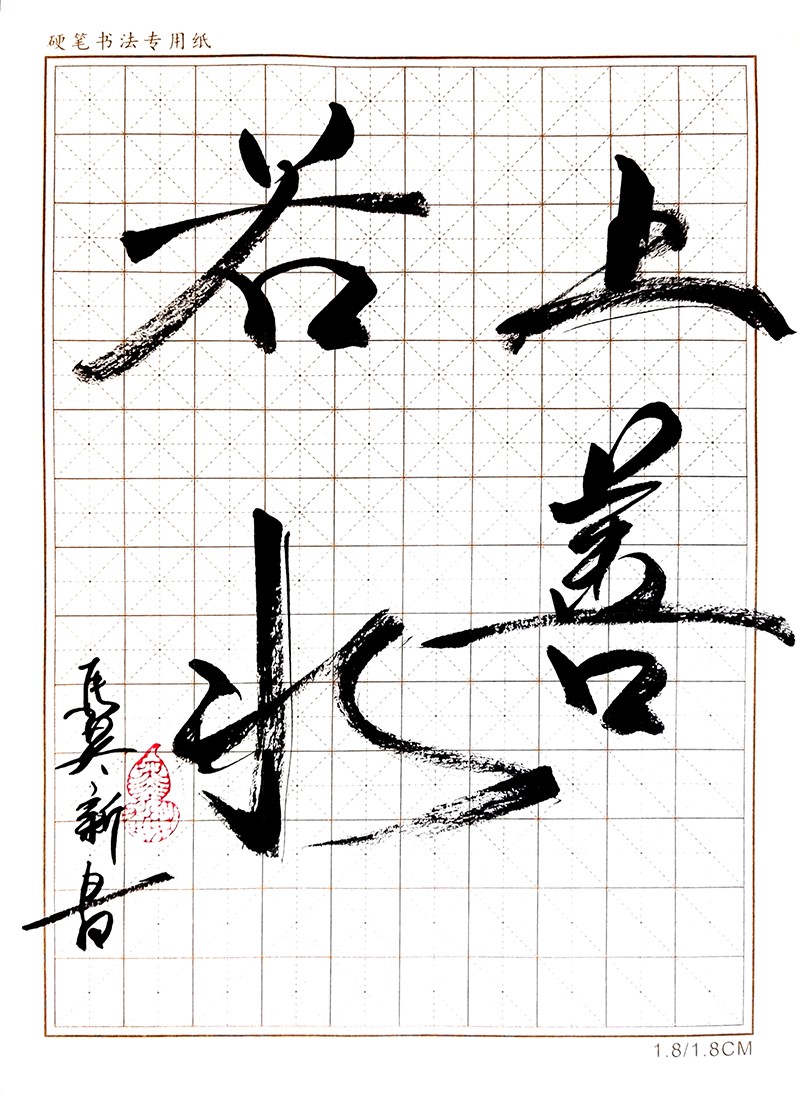 硬笔书法专用纸
上善
若水
吴新书
1.8/1.8CM